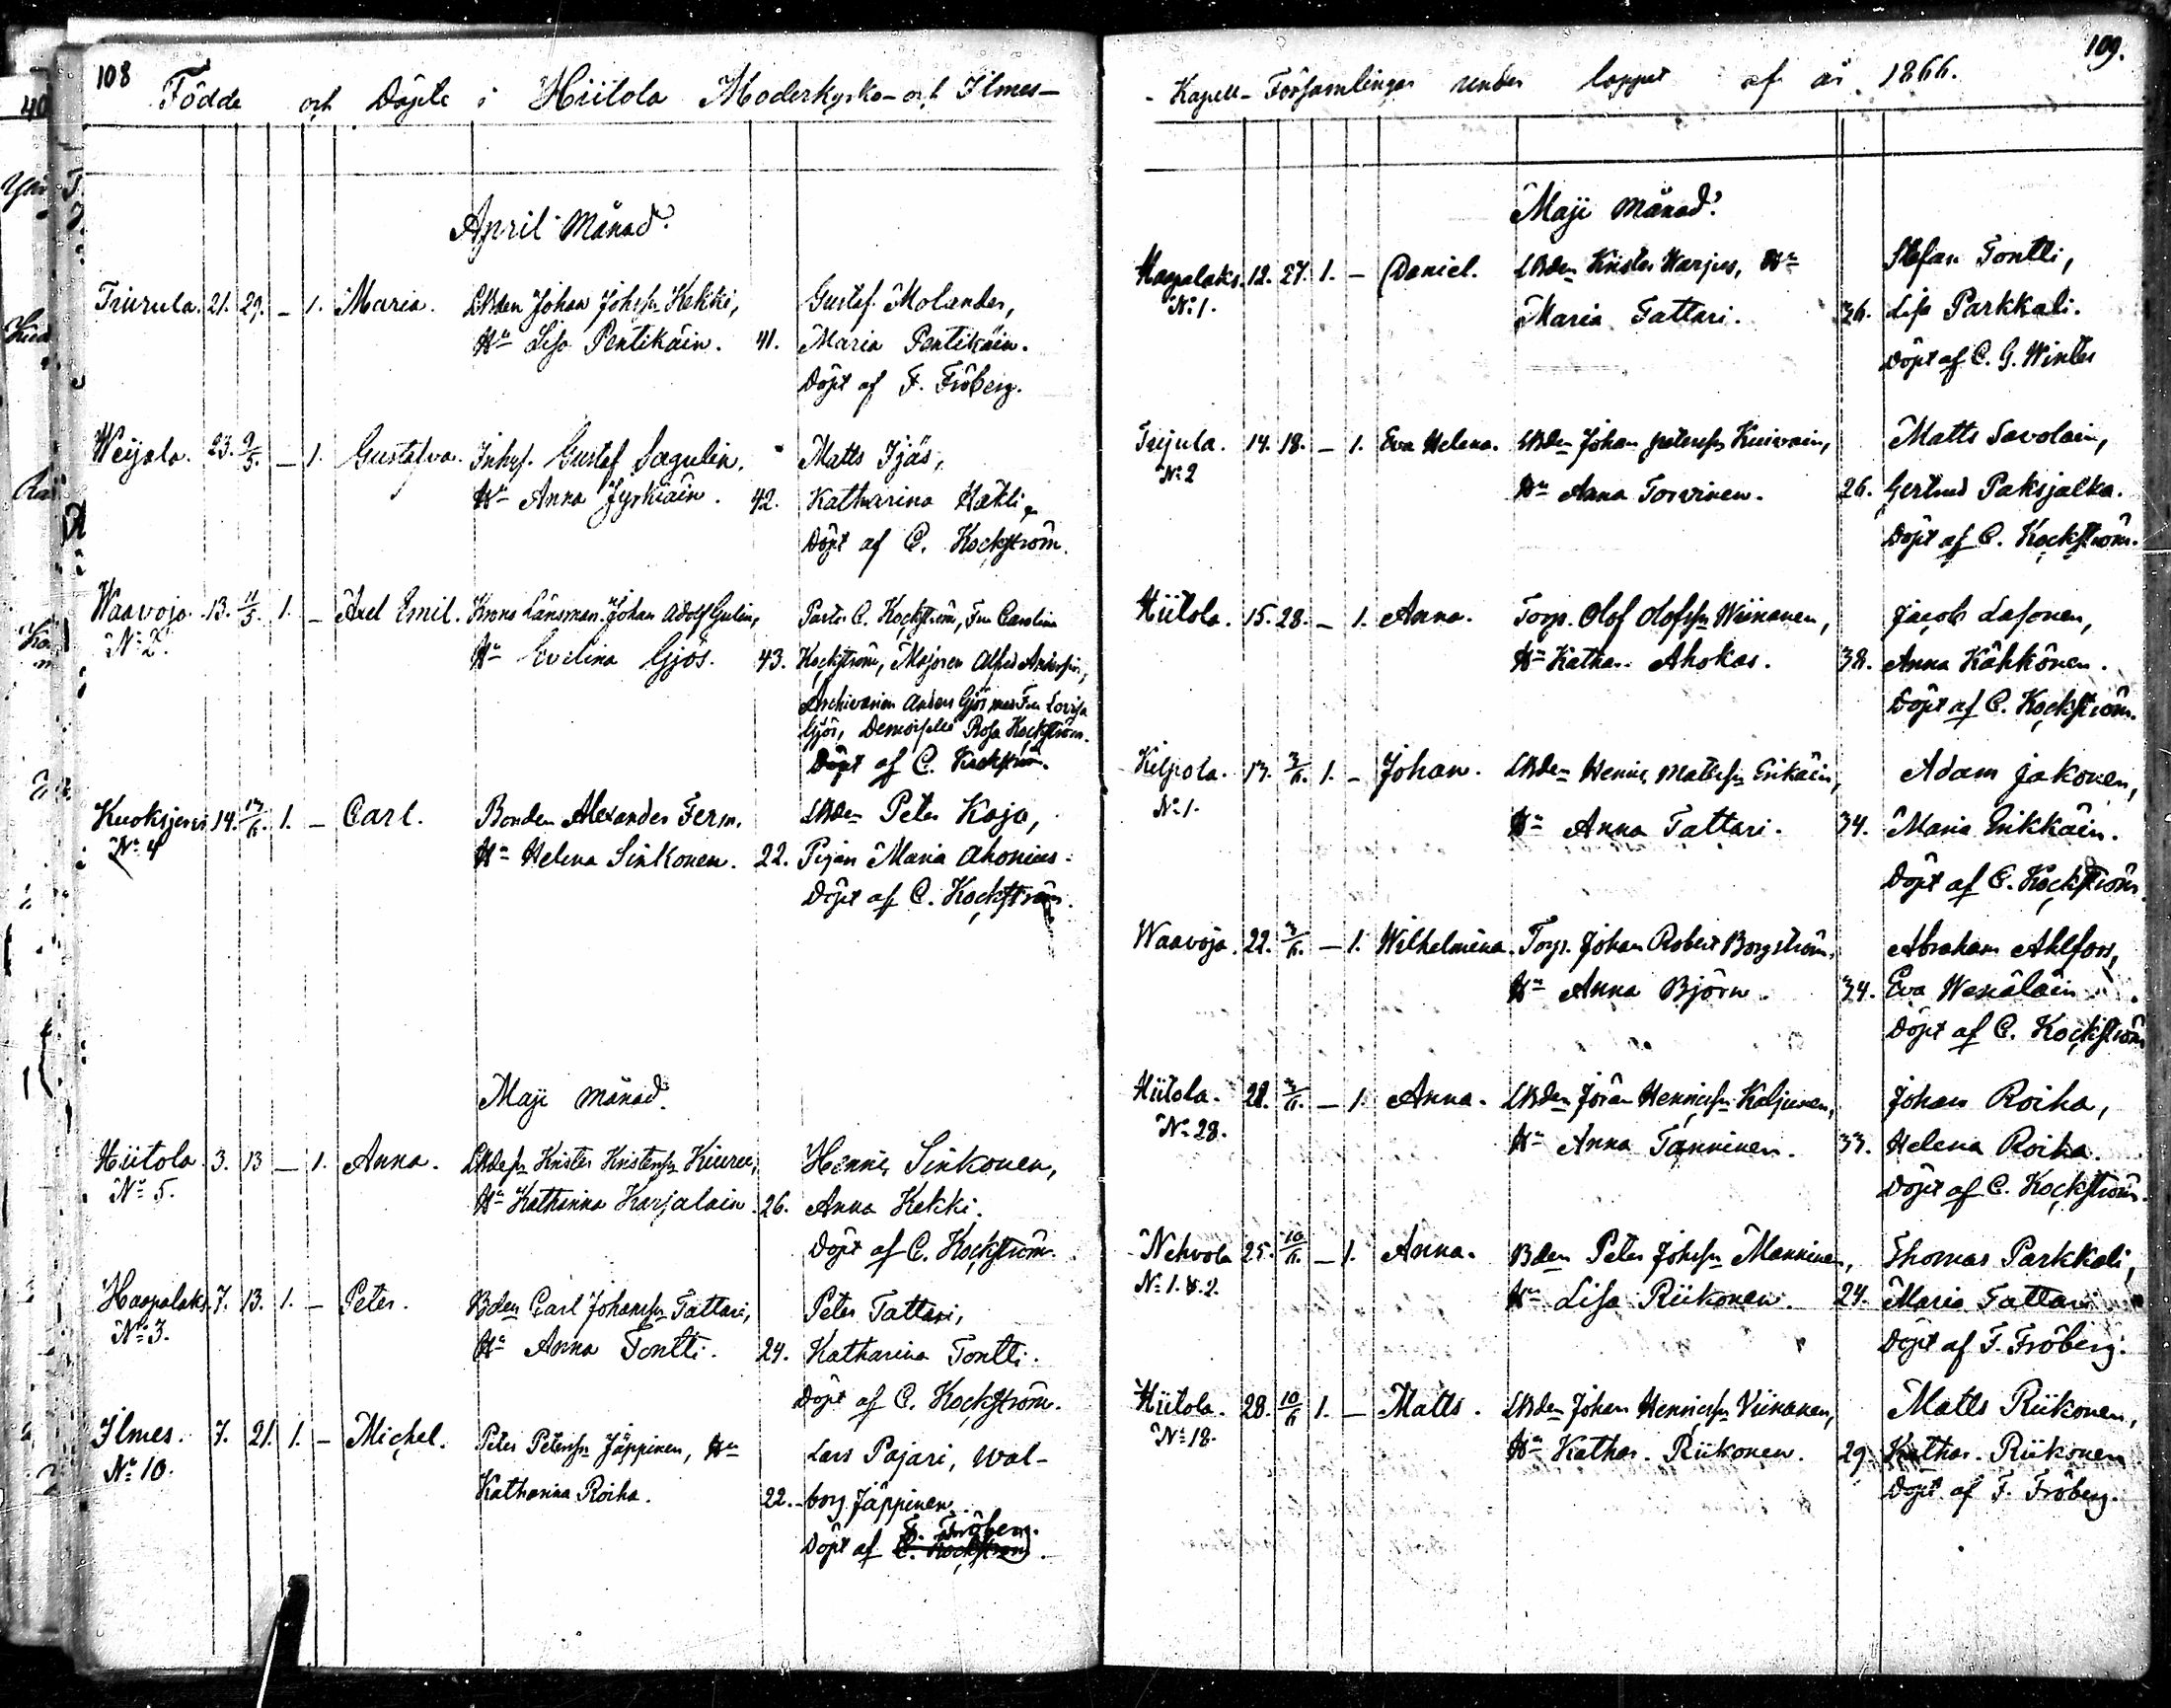 108
Födde och Döpte i Hiitola Moderkyrko- och Ilmes-
April Månad.
Tiurula. 21. 29. – 1. Maria. LBden Johan Johssn Kekki, Gustaf Molander,
Hu Lisa Pentikäin. 41. Maria Pentikäin.
Döpt af F. Fröberg.
Weijala. 23. 9/5. – 1. Gustafva. Inhys. Gustaf Sagulin, Matts Ijäs,
Hu Anna Jyrkiäin. 42. Katharina Häkli,
Döpt af C. Kockström.
Waavoja. 13. 11/5. 1. – Axel Emil. Krono Länsman Johan Adolf Gulin, Pastor C. Kockström, Fru Carolina
No 2. Hu Evelina Gjös. 43. Kockström, Majoren Alfred
Archivarien Anders Gjös, med Fru Lovisa
Gjös, Demoiselle Rosa Kockström.
Döpt af C. Kockström.
Kuoksjervi 14. 17/6. 1. – Carl. Bonden Alexander Ferm, LBden Peter Kaja,
No 4 Hu Helena Sinkonen. 22. Pigan Maria Ahonius.
Döpt af C. Kockström.
Maji månad.
Hiitola 3. 13 – 1. Anna. Krister Kristerssn Kiuru, Henric Sinkonen,
No 5. Hu Katharina Karjalain. 26. Anna Kekki.
Döpt af C. Kockström.
Haapalaks 7. 13. 1. – Peter. Bden Carl Johanssn Tattari, Peter Tattari,
No 3. Hu Anna Tontti. 24. Katharina Tontti.
Döpt af C. Kockström.
Ilmes. 7. 21. 1. – Michel. Peter Peterssn Jäppinen, Hu Lars Pajari, Wal-
No 10. Katharina Roiha. 22. -borg Jäppinen.
F. Fröberg.
Döpt af C. Kockström.
109.
- Kapell- Församlingar under loppet af år 1866.
Maji Månad.
Haapalaks. 12. 27. 1. – Daniel. LBden Krister Warjus, Hu Stefan Tontti,
No 1. Maria Tattari. 36. Lisa Parkkali.
Döpt af C. G. Winter
Teijula. 14. 18. – 1. Eva Helena. LBden Johan Peterssn Kuivain, Matts Savolain,
No 2 Hu Anna Torvinen. 26. Gertrud Paksjalka.
Döpt af C. Kockström.
Hiitola. 15. 28. – 1. Anna. Torp. Olof Olofssn Wiinanen, Jacob Lasonen,
Hu Kathar. Ahokas. 38. Anna Kähkönen.
Döpt af C. Kockström.
Kilpola. 17. 3/6. 1. – Johan. LBden Henric Matsssn Erikäin, Adam Jakonen,
No 1. Hu Anna Tattari. 34. Maria Erikkäin.
Döpt af C. Kockström.
Waavoja. 22. 3/6. – 1. Wilhelmina. Torp. Johan Robert Borgström, Abraham Ahlfors,
Hu Anna Björn. 34. Eva Wenäläin.
Döpt af C. Kockström
Hiitola. 22. 3/6. – 1. Anna. LBden Jöran Henricssn Kaljunen, Johan Roiha,
No 28. Hu Anna Tanninen. 33. Helena Roiha.
Döpt af C. Kockström.
Nehvola 25. 10/6. – 1. Anna. Bden Peter Johssn Manninen, Thomas Parkkali,
No 1. & 2. Hu Lisa Riikonen. 24. Maria Tattari.
Döpt af F. Fröberg.
Hiitola. 28. 10/6 1. – Matts. LBden Johan Henricssn Viinanen, Matts Riikonen,
No 18. Hu Kathar. Riikonen. 29. Kathar. Riikonen
Döpt af F. Fröberg.